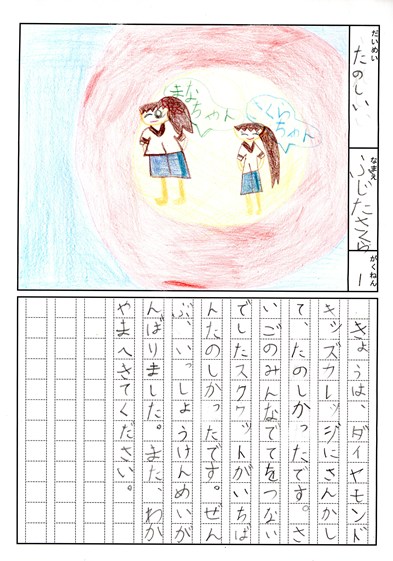 だいめい
たのしい
なまえ
ふじたさくら
がくねん
1
まなちゃん
さくらちゃん
きょうは、ダイヤモンド
キッズカレッジにさんかし
て、たのしかったです。さ
いごのみんなでてをつない
でしたスクワットがいちば
んたのしかったです。ぜん
ぶ、いっしょうけんめいが
んばりました。また、わか
やまへきてください。